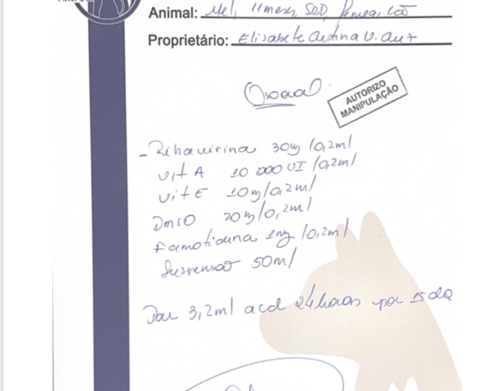 Animal: Mel, 11 meses, SRD, femea, cão
Proprietário: Elisabete
AUTORIZO
MANIPULAÇÃO
- Ribavirina 30mg/0,2ml
Vit A 10 000 UI/0,2ml
Vit E 10mg/0,2ml
DMSO 20mg/0,2ml
Famotidina 1mg/0,2ml
Suspensão 50ml
Dar 3,2ml a cd 24 horas por 15 dias